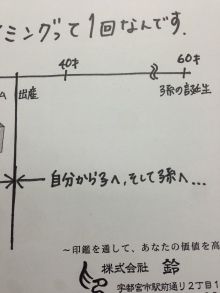 イミングって1回なんです.
40才
60才
A 出産
孫の誕生
自分から子へ,そして孫へ...
～印鑑を通して、あなたの価値を高
株式会社 鈴
宇都宮市駅前通り2丁目1